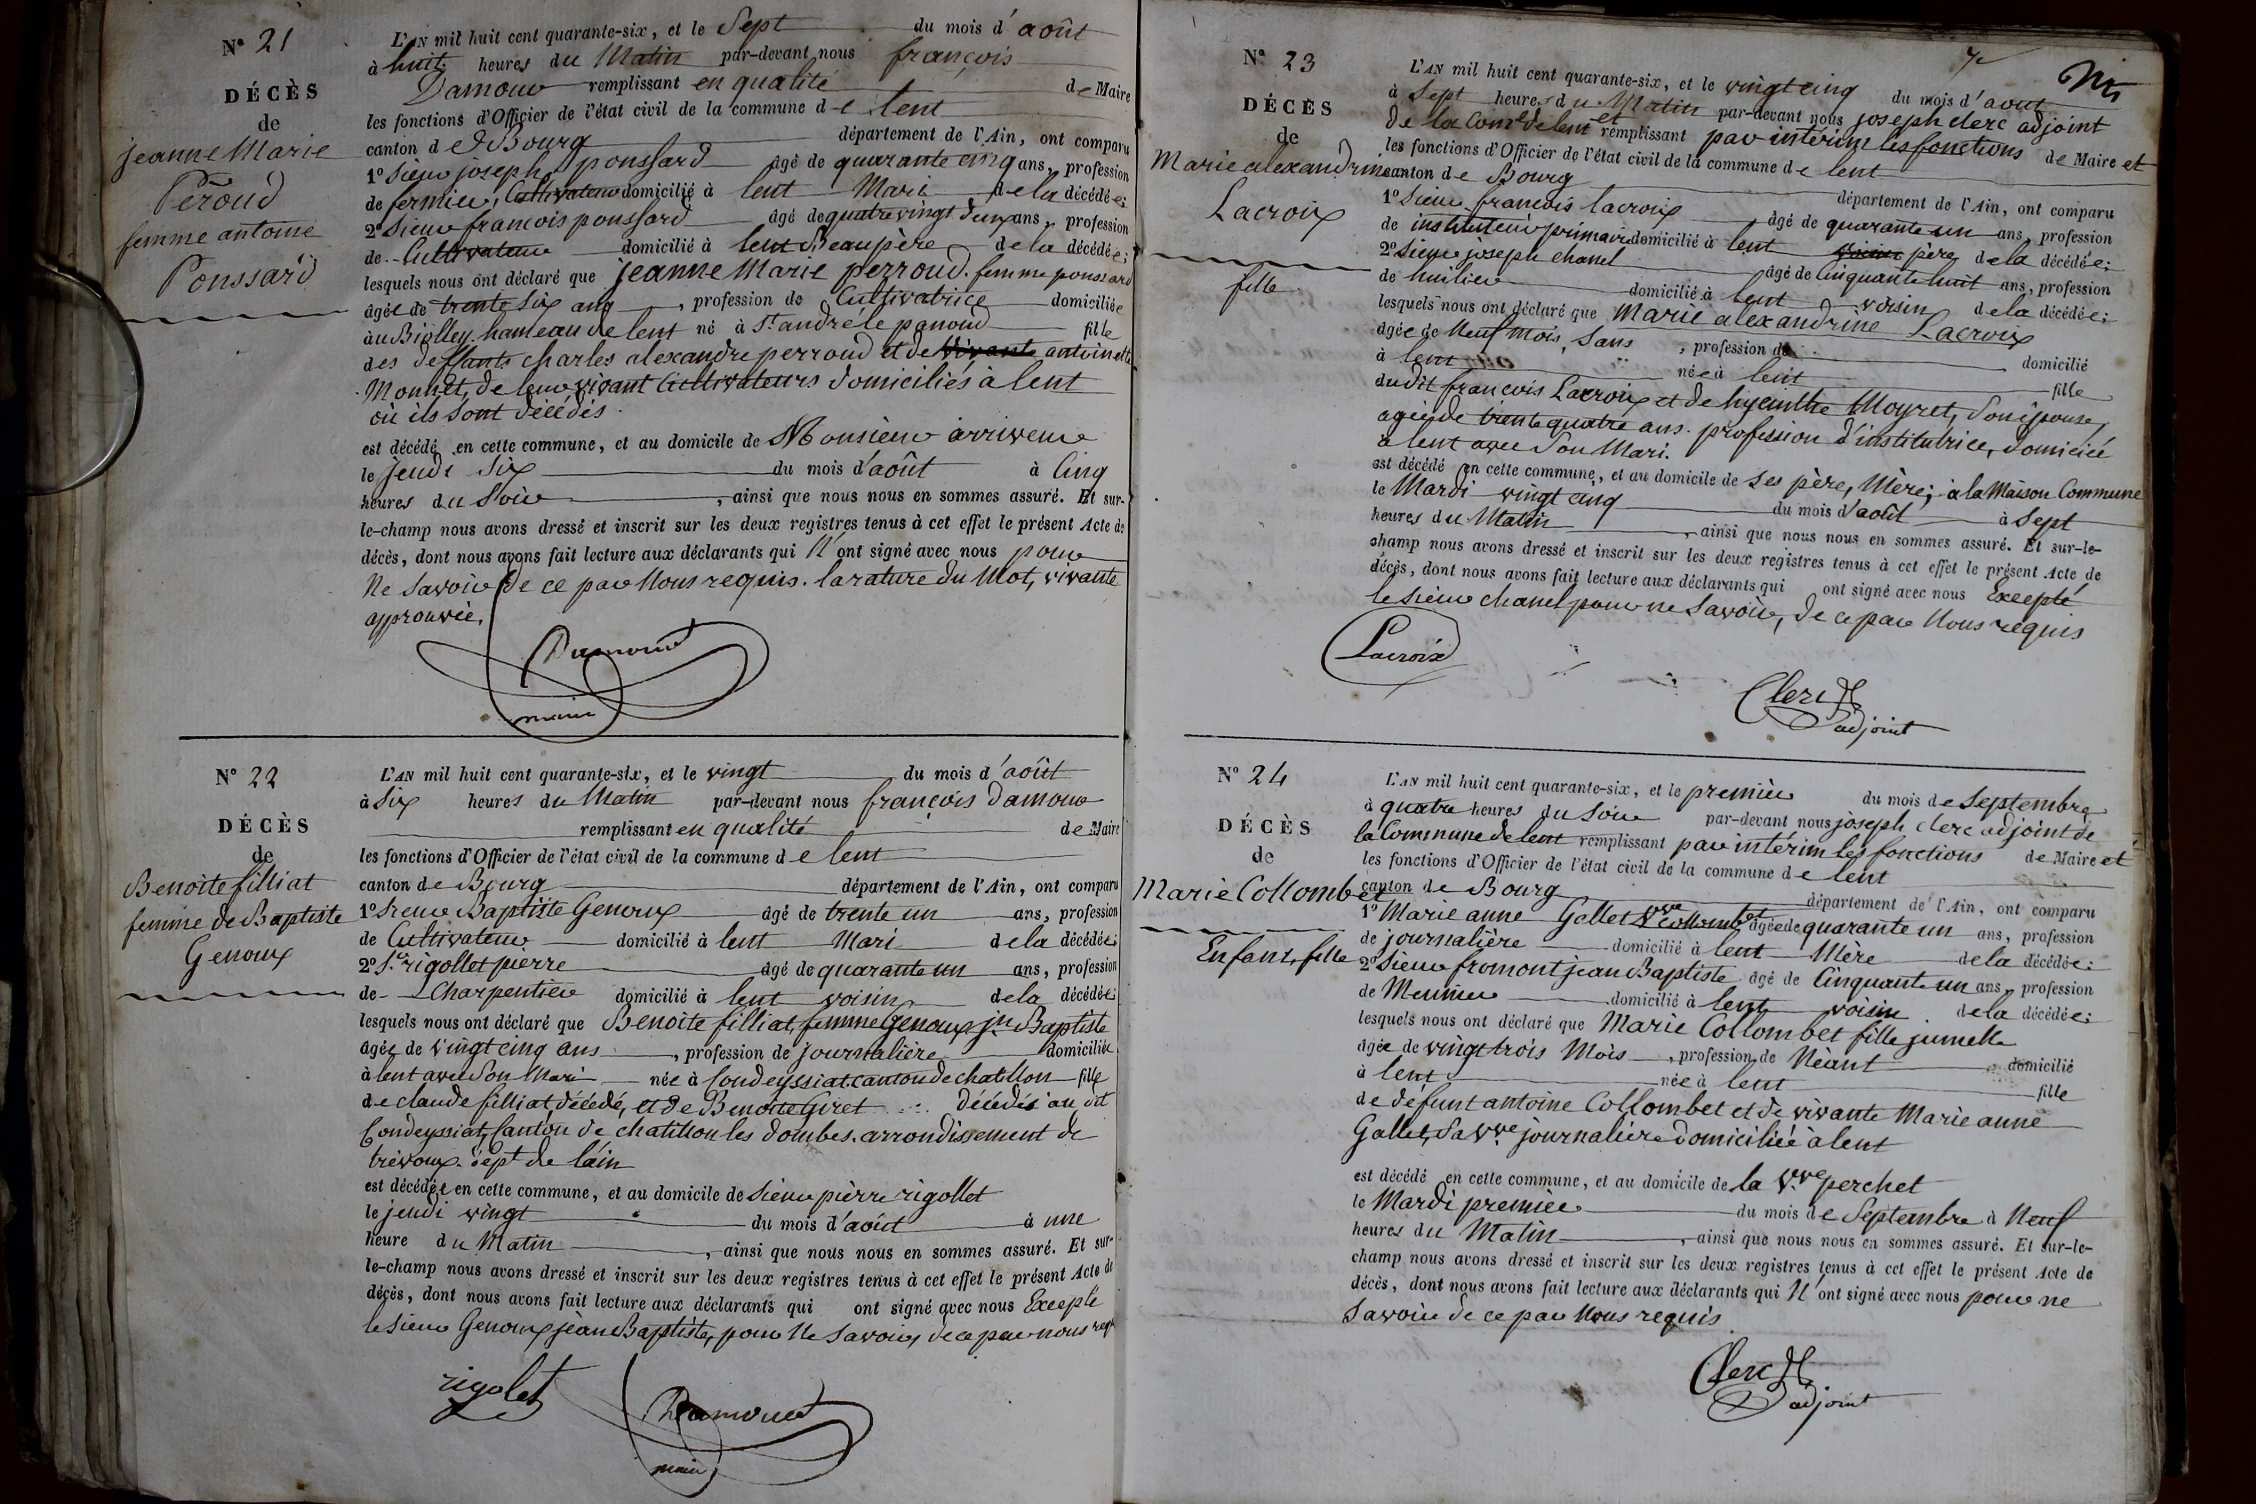 N° 21
DÉCÈS
de
jeanne Marie
Péroud
femme antoine
Poussard
L'AN mil huit cent quarante-six, et le Sept du mois d'août
à huit heures du Matin par-devant nous françois
Damour remplissant en qualité de Maire
les fonctions d'Officier de l'état civil de la commune de lent
canton de Bourg département de l'Ain, ont comparu
1° Sieur joseph poussard âgé de quarante cinq ans, profession
de fermier, Cultivateur domicilié à lent Mari de la décédée;
2° Sieur francois poussard âgé de quatre vingt deux ans, profession
de Cultivateur domicilié à lent Beaupère de la décédée;
lesquels nous ont déclaré que jeanne Marie perroud femme poussard
âgée de trente Six ans, profession de Cultivatrice domiciliée
au Biolley hameau de lent né à St andré le panoud fille
des deffunts charles alexandre perroud et de vivante antoinette
Monnet, de leur vivant Cultivateurs domiciliés à lent
où ils sont décédés.
est décédé en cette commune, et au domicile de Monsieur arriveur
le jeudi Six du mois d'août à Cinq
heures du Soir, ainsi que nous nous en sommes assuré. Et sur-
le-champ nous avons dressé et inscrit sur les deux registres tenus à cet effet le présent Acte de
décès, dont nous avons fait lecture aux déclarants qui N'ont signé avec nous pour
Ne Savoir de ce par Nous requis. la rature du Mot, vivante
approuvée.
Damour
maire
N° 22
DÉCÈS
de
Benoite filliat
femme de Baptiste
Genoux
L'AN mil huit cent quarante-six, et le vingt du mois d'août
à Six heures du Matin par-devant nous françois Damour
remplissant en qualité de Maire
les fonctions d'Officier de l'état civil de la commune de lent
canton de Bourg département de l'Ain, ont comparu
1° Sieur Baptiste Genoux âgé de trente un ans, profession
de Cultivateur domicilié à lent Mari de la décédée;
2° Sr rigollet pierre âgé de quarante un ans, profession
de Charpentier domicilié à lent voisin de la décédée;
lesquels nous ont déclaré que Benoite filliat, femme Genoux jn Baptiste
âgée de vingt cinq ans, profession de journalière domiciliée
à lent avec Son Mari née à Condeyssiat canton de chatillon fille
de claude filliat, décédé, et de Benoite Giret décédés au dit
Condeyssiat, Canton de chatillon les dombes arrondissement de
trévoux. dépt de l'ain
est décédée en cette commune, et au domicile de Sieur pièrre rigollet
le jeudi vingt du mois d'août à une
heure du Matin, ainsi que nous nous en sommes assuré. Et sur-
le-champ nous avons dressé et inscrit sur les deux registres tenus à cet effet le présent Acte de
décès, dont nous avons fait lecture aux déclarants qui ont signé avec nous Excepté
le Sieur Genoux jean Baptiste, pour Ne Savoir, de ce par nous reqs
rigolet
Damour
maire
7
N° 23
DÉCÈS
de
Marie alexandrine
Lacroix
fille
L'AN mil huit cent quarante-six, et le vingt cinq du mois d'aout
à Sept heures du Matin par-devant nous joseph clerc adjoint
de la Comne de lent et remplissant par intérim les fonctions de Maire et
les fonctions d'Officier de l'état civil de la commune de lent
canton de Bourg département de l'Ain, ont comparu
1° Sieur francois lacroix âgé de quarante un ans, profession
de instituteur primaire domicilié à lent voisin père de la décédée;
2° Sieur joseph chanel âgé de Cinquante huit ans, profession
de huilier domicilié à lent voisin de la décédée;
lesquels nous ont déclaré que Marie alexandrine Lacroix
âgée de Neuf mois, Sans, profession de domicilié
à lent née à lent fille
du dit francois Lacroix et de hyacinthe Moyret, Son épouse,
agée de trente quatre ans. profession d'institutrice, domicié
a lent avec Son Mari.
est décédé en cette commune, et au domicile de Ses père, Mère; à la Maison Commune
le Mardi vingt cinq du mois d'août à Sept
heures du Matin, ainsi que nous nous en sommes assuré. Et sur-le-
champ nous avons dressé et inscrit sur les deux registres tenus à cet effet le présent Acte de
décès, dont nous avons fait lecture aux déclarants qui ont signé avec nous Excepté
le Sieur chanel pour ne Savoir, de ce par Nous requis
Lacroix
Clerc
adjoint
N° 24
DÉCÈS
de
Marie Collombet
Enfant, fille
L'AN mil huit cent quarante-six, et le premier du mois de Septembre
à quatre heures du Soir par-devant nous joseph clerc adjoint de
la Commune de lent remplissant par intérim les fonctions de Maire et
les fonctions d'Officier de l'état civil de la commune de lent
canton de Bourg département de l'Ain, ont comparu
1° Marie anne Gallet Vve Collombet âgée de quarante un ans, profession
de journalière domicilié à lent Mère de la décédée;
2° Sieur fromont jean Baptiste âgé de Cinquante un ans, profession
de Meunier domicilié à lent voisin de la décédée;
lesquels nous ont déclaré que Marie Collombet fille jumelle
âgée de vingt trois Mois, profession de Néant domicilié
à lent née à lent fille
de défunt antoine Collombet et de vivante Marie anne
Gallet, Sa Vve journalière domiciliée à lent
est décédé en cette commune, et au domicile de la Vve perchet
le Mardi premier du mois de Septembre à Neuf
heures du Matin, ainsi que nous nous en sommes assuré. Et sur-le-
champ nous avons dressé et inscrit sur les deux registres tenus à cet effet le présent Acte de
décès, dont nous avons fait lecture aux déclarants qui N'ont signé avec nous pour ne
Savoir de ce par Nous requis
Clerc
adjoint